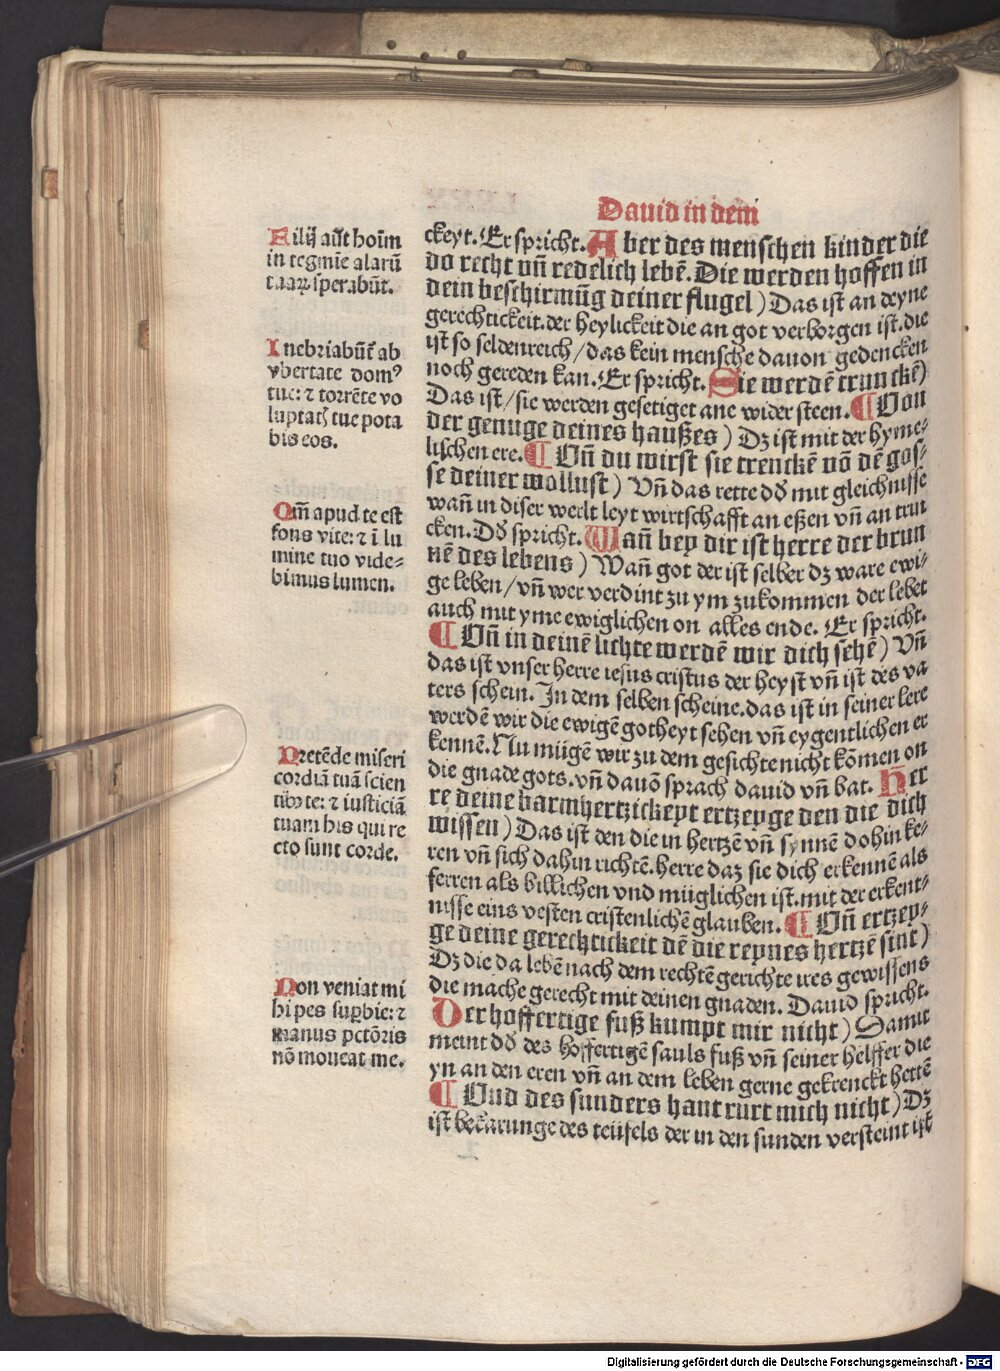 Dauid in dem
Filij aūt hoīm
in tegmīe alarū
tuaꝝ sperabūt.
Inebriabūt̄ ab
vbertate domꝰ
tue: ⁊ torrēte vo
luptatꝭ tue pota
bis eos.
Qm̄ apud te est
fons vite: ⁊ ī lu
mine tuo vide-
bimus lumen.
Pretēde miseri
cordiā tuā scien
tibꝰ te: ⁊ iusticiā
tuam his qui re
cto sunt corde.
Non veniat mi
hi pes suꝑbie: ⁊
manus pctōris
nō moueat me.
ckeyt. Er spricht. Aber des menschen kinder die
do recht vn̄ redelich lebē. Die werden hoffen in
dein beschirmūg deiner flugel) Das ist an deyne
gerechtickeit. der heylickeit die an got verborgen ist. die
ist so seldenreich/das kein mensche dauon gedencken
noch gereden kan. Er spricht. Sie werdē trunckē)
Das ist/sie werden gesetiget ane wider steen. ¶ Von
der genuge deines haußes) Dz ist mit der hyme-
lischen ere. ¶ Vn̄ du wirst sie trenckē vō dē gos-
se deiner wollust) Vn̄ das rette dd̄ mit gleichnisse
wan̄ in diser werlt leyt wirtschafft an eßen vn̄ an trin
cken. Dd̄ spricht. Wan̄ bey dir ist herre der brun
nē des lebens) Wan̄ got der ist selber dz ware ewi-
ge leben/vn̄ wer verdint zu ym zukommen der lebet
auch mit yme ewiglichen on alles ende. Er spricht.
¶ Vn̄ in deinē lichte werdē wir dich sehē) Vn̄
das ist vnser herre iesus cristus der heyst vn̄ ist des va
ters schein. In dem selben scheine. das ist in seiner lere
werdē wir die ewigē gotheyt sehen vn̄ eygentlichen er
kennē. Nu mügē wir zu dem gesichte nicht kōmen on
die gnade gots. vn̄ dauō sprach dauid vn̄ bat. Her
re deine barmhertzickeyt ertzeyge den die dich
wissen) Das ist den die in hertzē vn̄ synnē dohin ke-
ren vn̄ sich dahin richtē. herre daz sie dich erkennē als
ferren als billichen vnd müglichen ist. mit der erkent-
nisse eins vesten cristenlichē glauben. ¶ Vn̄ ertzey-
ge deine gerechtickeit dē die reynes hertzē sint)
Dz die da lebē nach dem rechtē gerichte ires gewissens
die mache gerecht mit deinen gnaden. Dauid spricht.
Der hoffertige fuß kumpt mir nicht) Damit
meint dd̄ des hoffertigē sauls fuß vn̄ seiner helffer die
yn an den eren vn̄ an dem leben gerne gekrenckt hettē
¶ Vnd des sunders hant rurt mich nicht) Dz
ist bekarunge des teüfels der in den sunden versteint ist
Digitalisierung gefördert durch die Deutsche Forschungsgemeinschaft - DFG